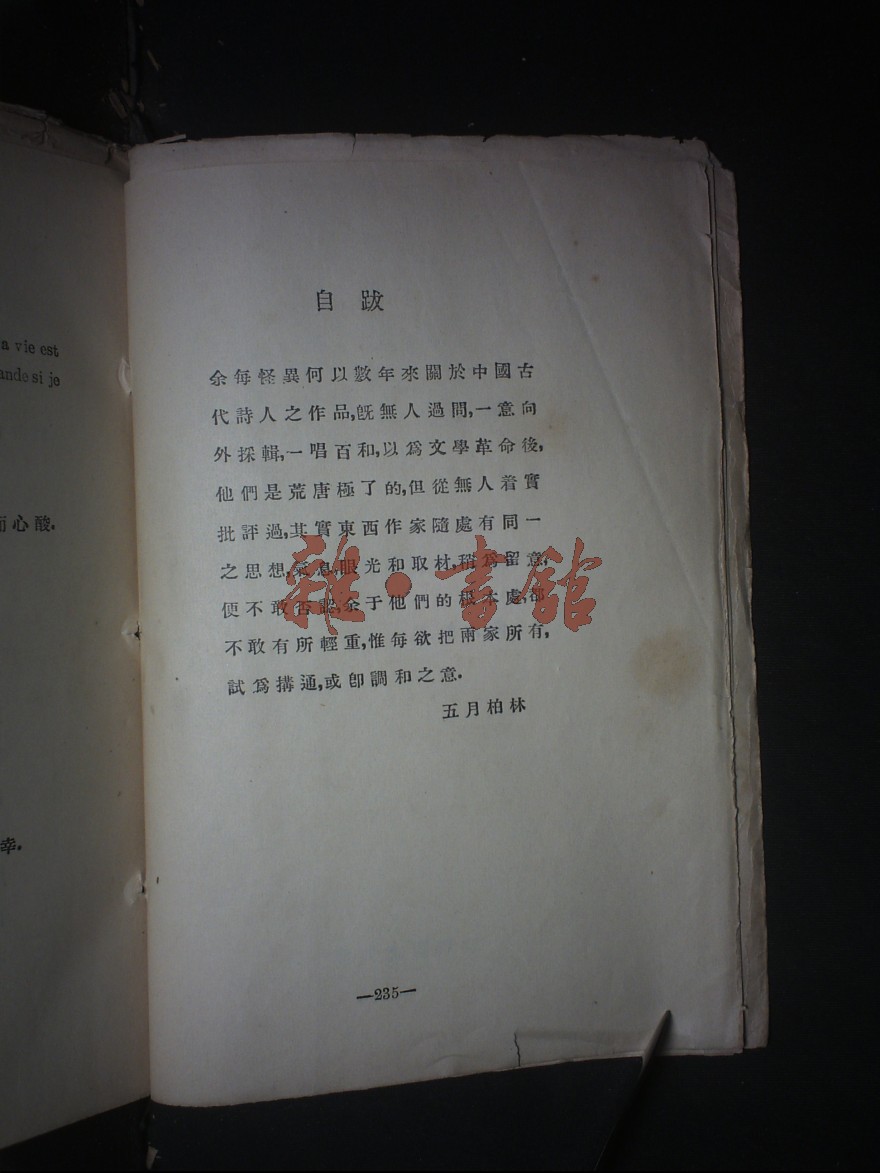 a vie est
ande si je
而心酸.
幸.
自跋
余每怪異何以數年來關於中國古
代詩人之作品,旣無人過問,一意向
外採輯,一唱百和,以爲文學革命後,
他們是荒唐極了的,但從無人着實
批評過,其實東西作家隨處有同一
之思想,氣息,眼光和取材,稍爲留意,
便不敢否認,余于他們的根本處,都
不敢有所輕重,惟每欲把兩家所有,
試爲搆通,或卽調和之意.
五月柏林
—235—
雜·書館